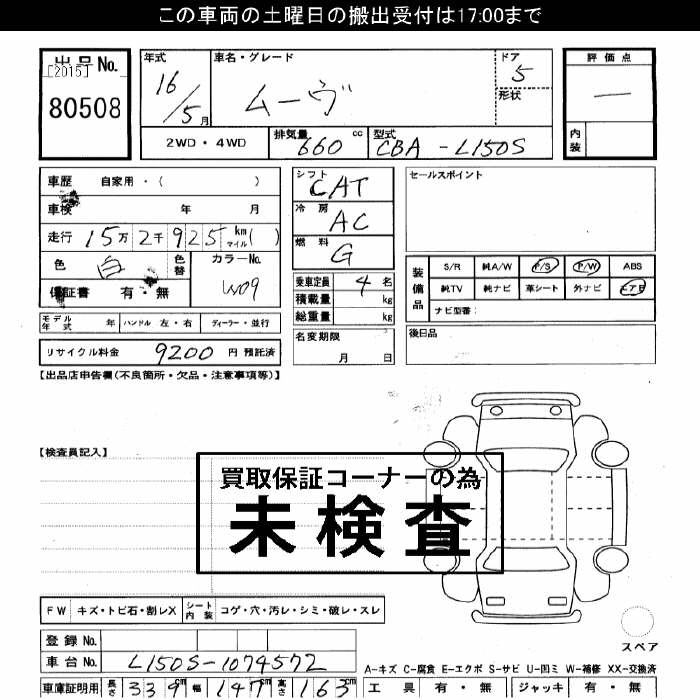 この車両の土曜日の搬出受付は17:00まで
出品No.
[2015]
80508
年式
16/5月
車名・グレード
ムーヴ
ドア
5
形状
評価点
一
内装
2WD・4WD
排気量
660 cc
型式
CBA-L150S
車歴 自家用・( )
車検 年 月
走行 15万2千925km マイル( )
色 白 色替
カラーNo.
W09
保証書 有・無
モデル年式 年 ハンドル 左・右 ディーラー・並行
リサイクル料金 9200 円 預託済
シフト
CAT
冷房
AC
燃料
G
乗車定員 4 名
積載量 kg
総重量 kg
名変期限
月 日
セールスポイント
装備品
S/R 純A/W P/S P/W ABS
純TV 純ナビ 革シート 外ナビ エアB
ナビ型番:
後日品
【出品店申告欄(不良箇所・欠品・注意事項等)】
【検査員記入】
買取保証コーナーの為
未検査
FW キズ・トビ石・割レX シート内装 コゲ・穴・汚レ・シミ・破レ・スレ
スペア
登録No.
車台No. L150S-1074572
A-キズ C-腐食 E-エクボ S-サビ U-凹ミ W-補修 XX-交換済
車庫証明用 長さ 339cm 幅 147cm 高さ 163cm
工具 有・無 ジャッキ 有・無